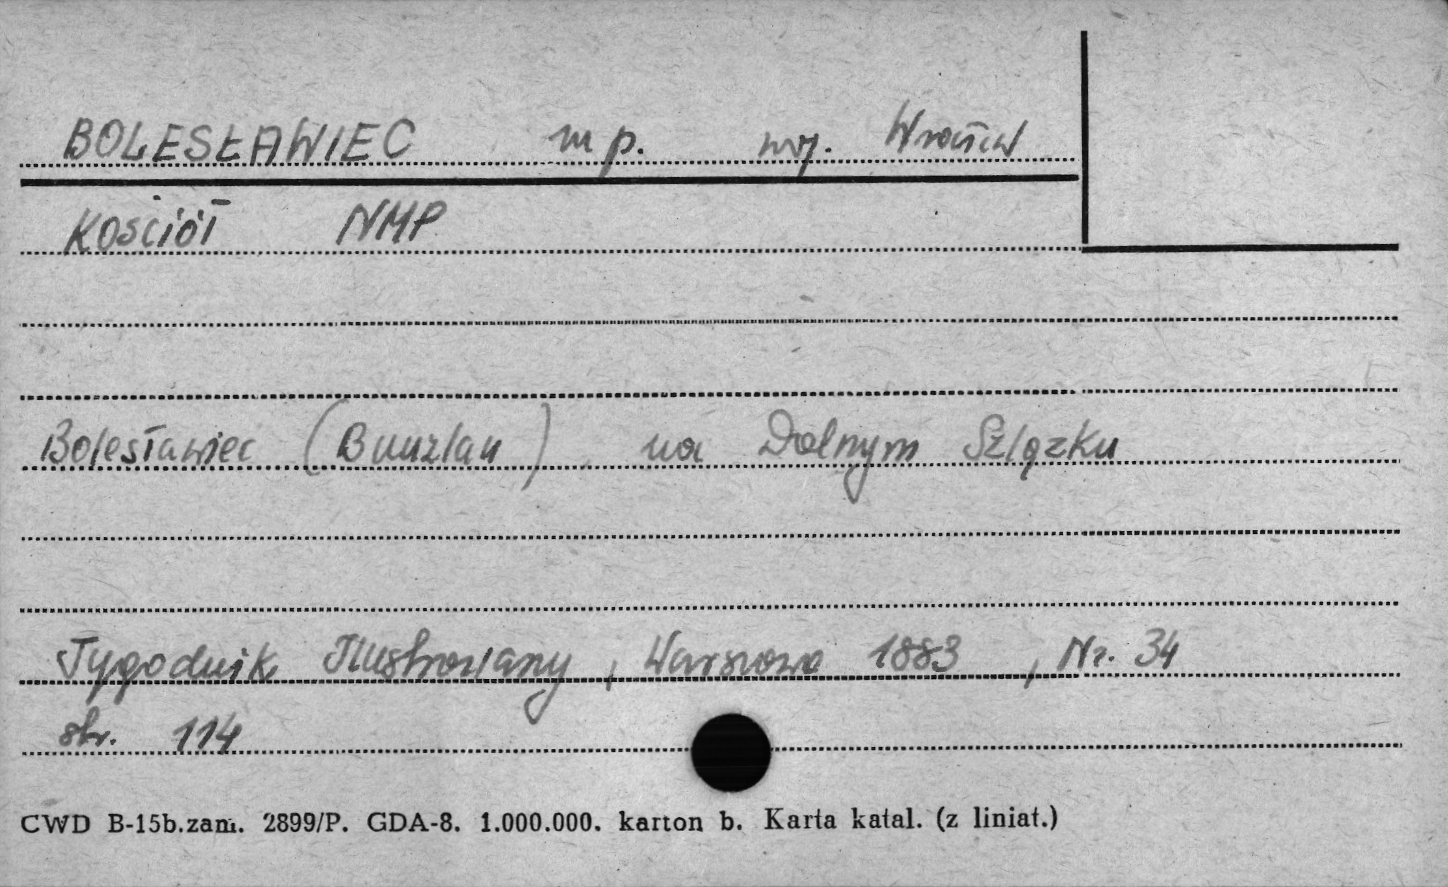 BOLESŁAWIEC m p. woj. Wrocław
Kościół NMP
Bolesławiec (Bunzlau), na Dolnym Szlązku
Tygodnik Ilustrowany, Warszawa 1883, Nr. 34
str. 114
CWD B-15b.zam. 2899/P. GDA-8. 1.000.000. karton b. Karta katal. (z liniat.)